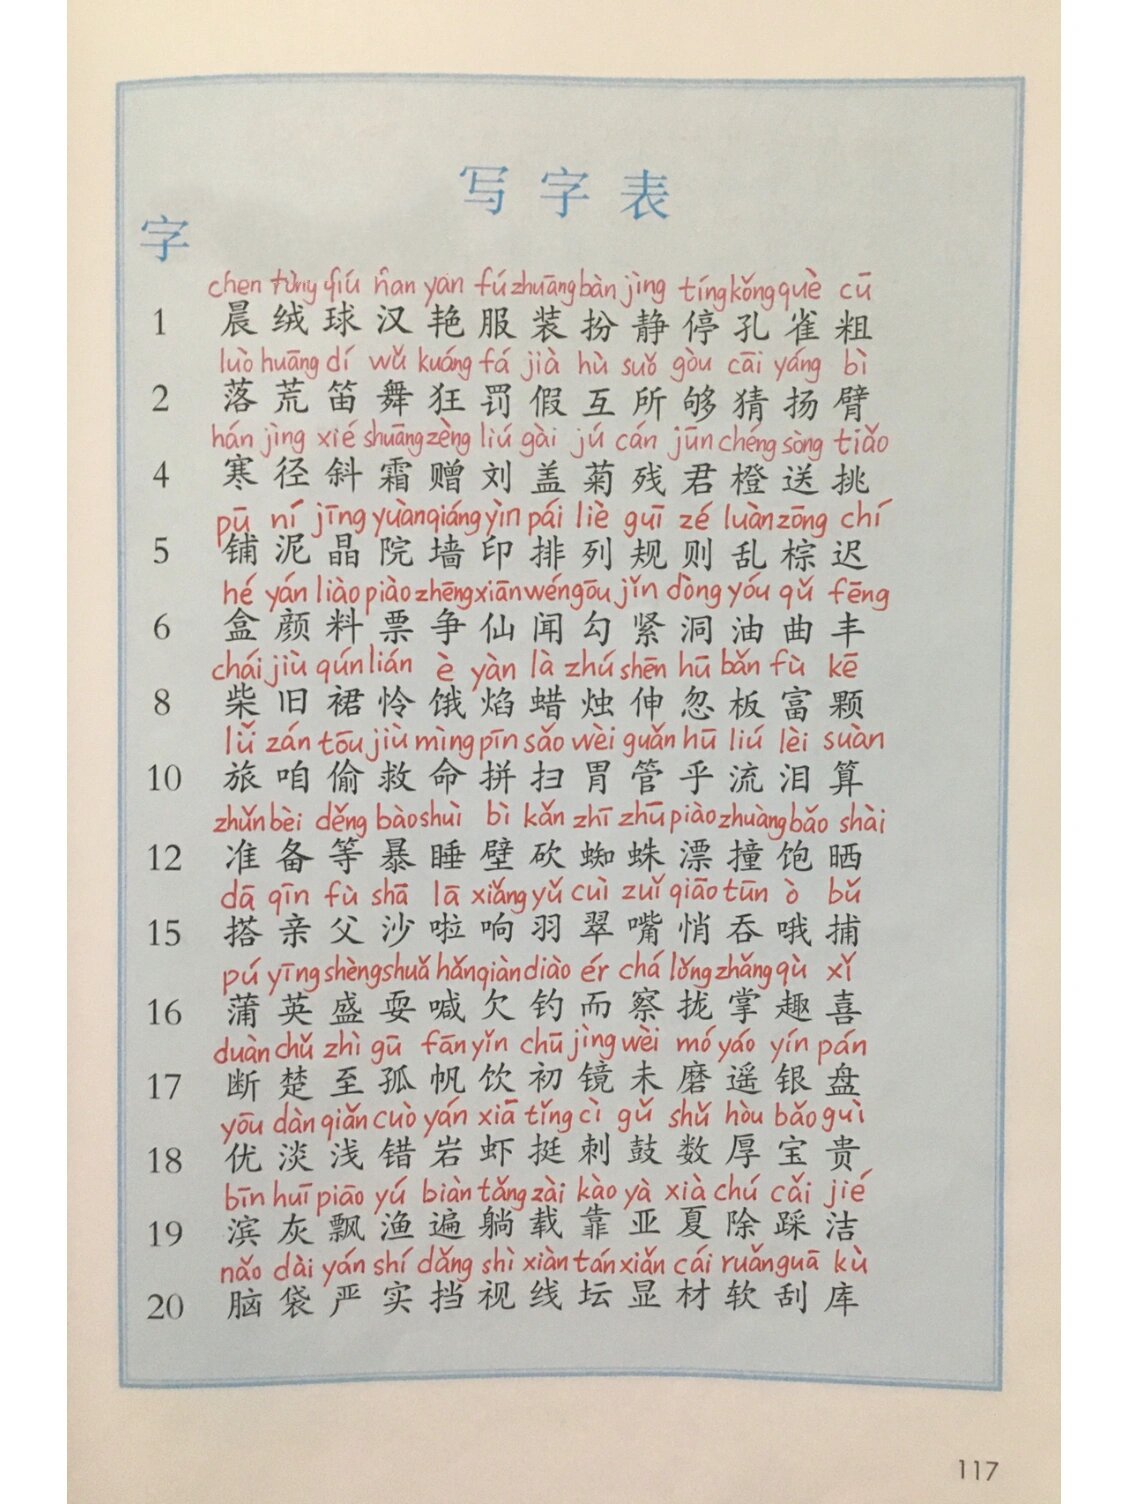 写字表
字
chen róng qiú hàn yàn fú zhuāng bàn jìng tíng kǒng què cū
1 晨 绒 球 汉 艳 服 装 扮 静 停 孔 雀 粗
luò huāng dí wǔ kuáng fá jià hù suǒ gòu cāi yáng bì
2 落 荒 笛 舞 狂 罚 假 互 所 够 猜 扬 臂
hán jìng xié shuāng zèng liú gài jú cán jūn chéng sòng tiǎo
4 寒 径 斜 霜 赠 刘 盖 菊 残 君 橙 送 挑
pū ní jīng yuàn qiáng yìn pái liè guī zé luàn zōng chí
5 铺 泥 晶 院 墙 印 排 列 规 则 乱 棕 迟
hé yán liào piào zhēng xiān wén gōu jǐn dòng yóu qǔ fēng
6 盒 颜 料 票 争 仙 闻 勾 紧 洞 油 曲 丰
chái jiù qún lián è yàn là zhú shēn hū bǎn fù kē
8 柴 旧 裙 怜 饿 焰 蜡 烛 伸 忽 板 富 颗
lǚ zán tōu jiù mìng pīn sǎo wèi guǎn hū liú lèi suàn
10 旅 咱 偷 救 命 拼 扫 胃 管 乎 流 泪 算
zhǔn bèi děng bào shuì bì kǎn zhī zhū piào zhuàng bǎo shài
12 准 备 等 暴 睡 壁 砍 蜘 蛛 漂 撞 饱 晒
dā qīn fù shā lā xiǎng yǔ cuì zuǐ qiāo tūn ò bǔ
15 搭 亲 父 沙 啦 响 羽 翠 嘴 悄 吞 哦 捕
pú yīng shèng shuǎ hǎn qiàn diào ér chá lǒng zhǎng qù xǐ
16 蒲 英 盛 耍 喊 欠 钓 而 察 拢 掌 趣 喜
duàn chǔ zhì gū fān yǐn chū jìng wèi mó yáo yín pán
17 断 楚 至 孤 帆 饮 初 镜 未 磨 遥 银 盘
yōu dàn qiǎn cuò yán xiā tǐng cì gǔ shǔ hòu bǎo guì
18 优 淡 浅 错 岩 虾 挺 刺 鼓 数 厚 宝 贵
bīn huī piāo yú biàn tǎng zài kào yà xià chú cǎi jié
19 滨 灰 飘 渔 遍 躺 载 靠 亚 夏 除 踩 洁
nǎo dài yán shí dǎng shì xiàn tán xiǎn cái ruǎn guā kù
20 脑 袋 严 实 挡 视 线 坛 显 材 软 刮 库
117